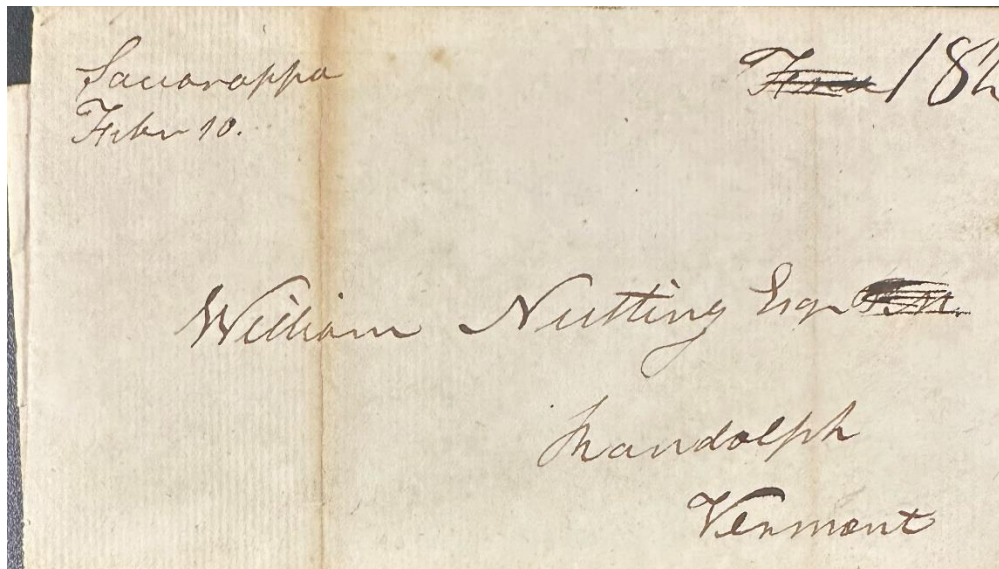 Saccarappa
Febr 10.
Free 18½
William Nutting Esqr P.M.
Randolph
Vermont